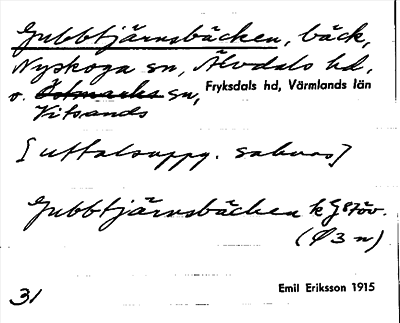 Gubbtjärnsbäcken, bäck,
Nyskoga sn, Älvdals hd,
o. Östmarks sn, Fryksdals hd, Värmlands län
Vitsands
[uttalsuppg. saknas]
Gubbtjärnsbäcken k G87öv.
(Ø3n)
31
Emil Eriksson 1915